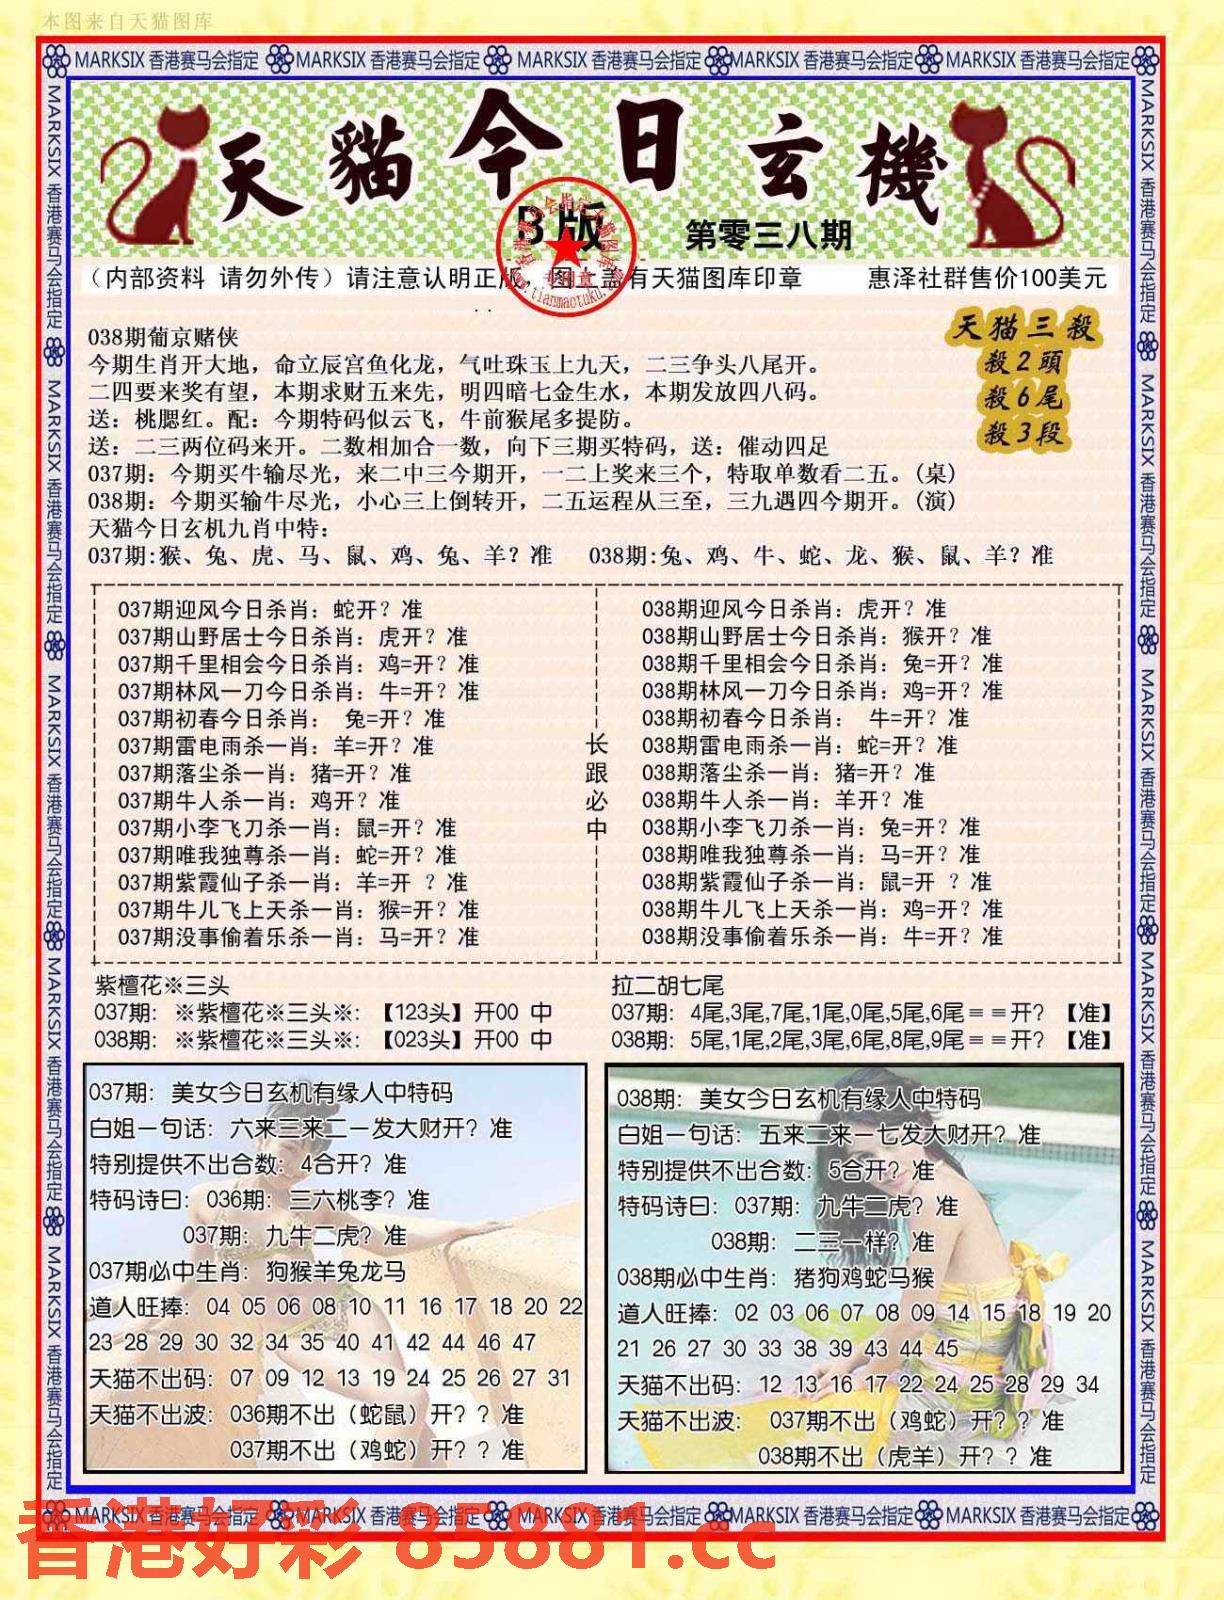 本图来自天猫图库
MARKSIX 香港赛马会指定 MARKSIX 香港赛马会指定 MARKSIX 香港赛马会指定 MARKSIX 香港赛马会指定 MARKSIX 香港赛马会指定
天貓今日玄機
B版
第零三八期
（内部资料 请勿外传）请注意认明正版 图 盖有天猫图库印章 惠泽社群售价100美元
专用章
www.tianmaotuku.com
天猫三殺
殺2頭
殺6尾
殺3段
038期葡京赌侠
今期生肖开大地，命立辰宫鱼化龙，气吐珠玉上九天，二三争头八尾开。
二四要来奖有望，本期求财五来先，明四暗七金生水，本期发放四八码。
送：桃腮红。配：今期特码似云飞，牛前猴尾多提防。
送：二三两位码来开。二数相加合一数，向下三期买特码，送：催动四足
037期：今期买牛输尽光，来二中三今期开，一二上奖来三个，特取单数看二五。(桌)
038期：今期买输牛尽光，小心三上倒转开，二五运程从三至，三九遇四今期开。(演)
天猫今日玄机九肖中特：
037期:猴、兔、虎、马、鼠、鸡、兔、羊？准 038期:兔、鸡、牛、蛇、龙、猴、鼠、羊？准
037期迎风今日杀肖：蛇开？准
037期山野居士今日杀肖：虎开？准
037期千里相会今日杀肖：鸡=开？准
037期林风一刀今日杀肖：牛=开？准
037期初春今日杀肖： 兔=开？准
037期雷电雨杀一肖：羊=开？准
037期落尘杀一肖：猪=开？准
037期牛人杀一肖：鸡开？准
037期小李飞刀杀一肖：鼠=开？准
037期唯我独尊杀一肖：蛇=开？准
037期紫霞仙子杀一肖：羊=开 ？准
037期牛儿飞上天杀一肖：猴=开？准
037期没事偷着乐杀一肖：马=开？准
长
跟
必
中
038期迎风今日杀肖：虎开？准
038期山野居士今日杀肖：猴开？准
038期千里相会今日杀肖：兔=开？准
038期林风一刀今日杀肖：鸡=开？准
038期初春今日杀肖： 牛=开？准
038期雷电雨杀一肖：蛇=开？准
038期落尘杀一肖：猪=开？准
038期牛人杀一肖：羊开？准
038期小李飞刀杀一肖：兔=开？准
038期唯我独尊杀一肖：马=开？准
038期紫霞仙子杀一肖：鼠=开 ？准
038期牛儿飞上天杀一肖：鸡=开？准
038期没事偷着乐杀一肖：牛=开？准
紫檀花※三头
037期：※紫檀花※三头※：【123头】开00 中
038期：※紫檀花※三头※：【023头】开00 中
拉二胡七尾
037期：4尾,3尾,7尾,1尾,0尾,5尾,6尾==开？【准】
038期：5尾,1尾,2尾,3尾,6尾,8尾,9尾==开？【准】
037期：美女今日玄机有缘人中特码
白姐一句话：六来三来二一发大财开？准
特别提供不出合数：4合开？准
特码诗曰：036期：三六桃李？准
037期：九牛二虎？准
037期必中生肖：狗猴羊兔龙马
道人旺捧：04 05 06 08 10 11 16 17 18 20 22
23 28 29 30 32 34 35 40 41 42 44 46 47
天猫不出码：07 09 12 13 19 24 25 26 27 31
天猫不出波：036期不出（蛇鼠）开？？准
037期不出（鸡蛇）开？？准
038期：美女今日玄机有缘人中特码
白姐一句话：五来二来一七发大财开？准
特别提供不出合数：5合开？准
特码诗曰：037期：九牛二虎？准
038期：二三一样？准
038期必中生肖：猪狗鸡蛇马猴
道人旺捧：02 03 06 07 08 09 14 15 18 19 20
21 26 27 30 33 38 39 43 44 45
天猫不出码：12 13 16 17 22 24 25 28 29 34
天猫不出波： 037期不出（鸡蛇）开？？准
038期不出（虎羊）开？？准
MARKSIX 香港赛马会指定 MARKSIX 香港赛马会指定 MARKSIX 香港赛马会指定 MARKSIX 香港赛马会指定 MARKSIX 香港赛马会指定
MARKSIX 香港赛马会指定 MARKSIX 香港赛马会指定 MARKSIX 香港赛马会指定 MARKSIX 香港赛马会指定 MARKSIX 香港赛马会指定
MARKSIX 香港赛马会指定 MARKSIX 香港赛马会指定 MARKSIX 香港赛马会指定 MARKSIX 香港赛马会指定 MARKSIX 香港赛马会指定
香港好彩 85881.cc